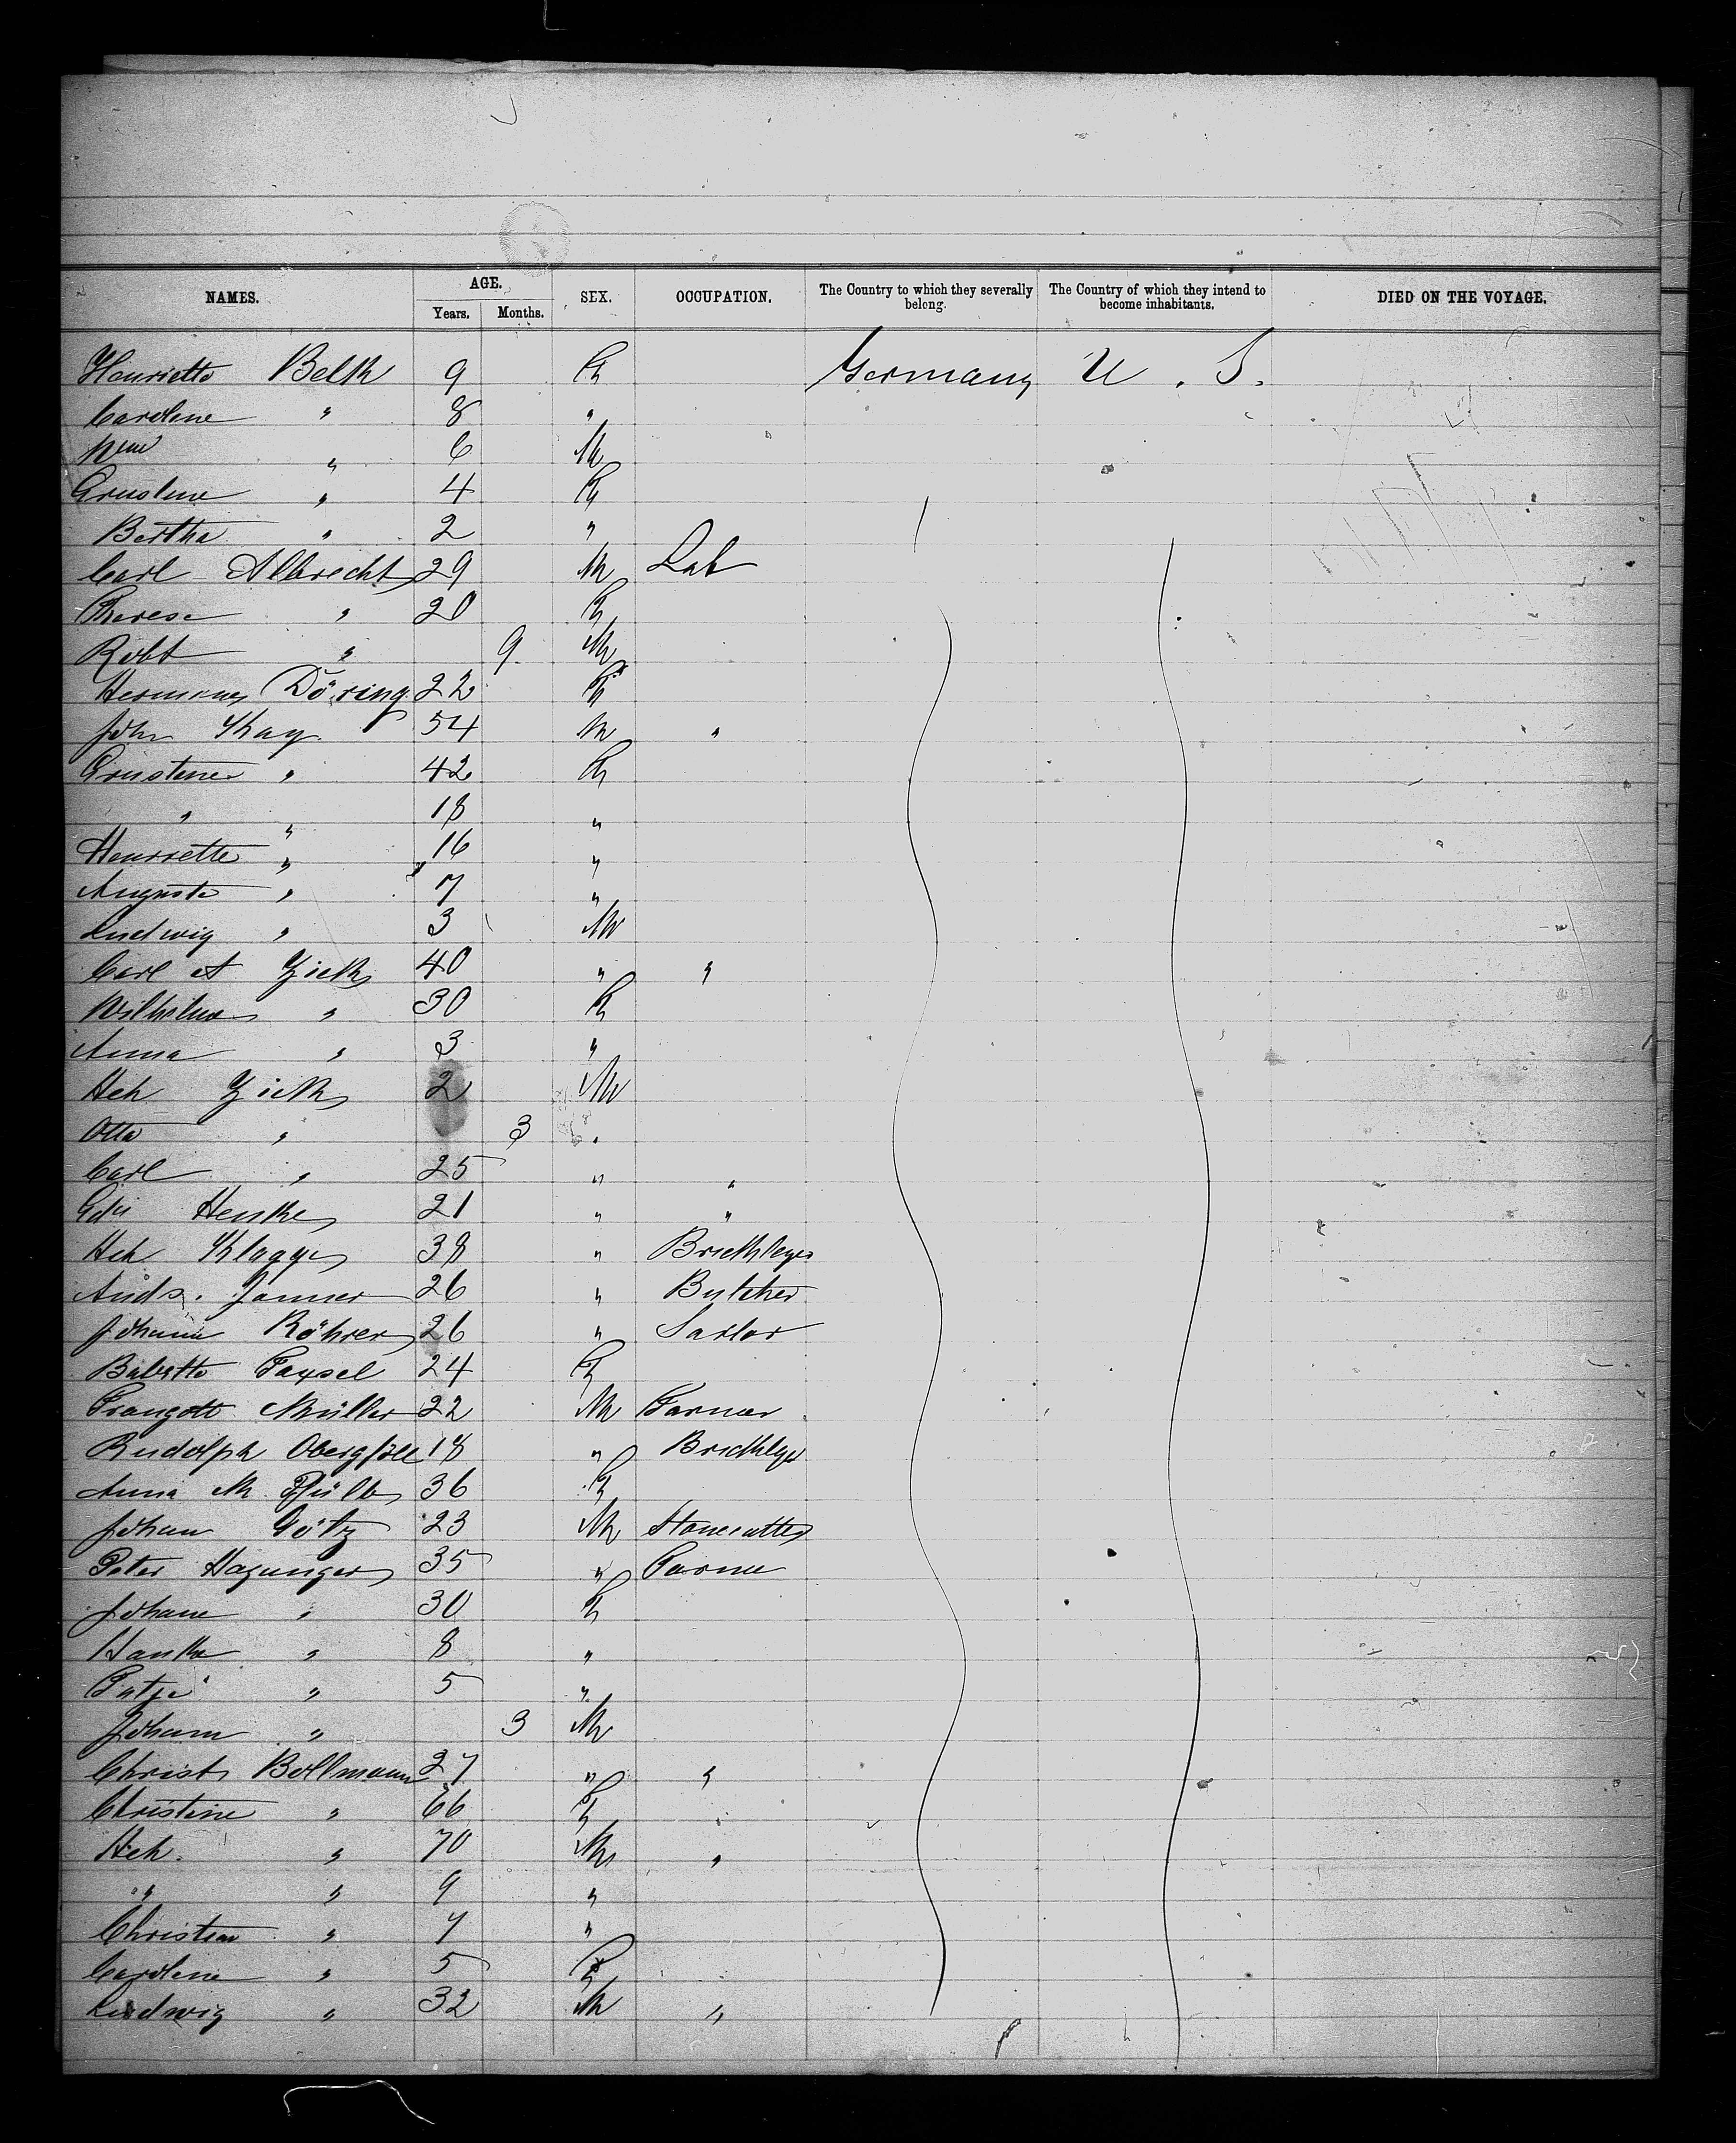 NAMES. AGE. Years. Months. SEX. OCCUPATION. The Country to which they severally belong. The Country of which they intend to become inhabitants. DIED ON THE VOYAGE.
Henriette Belk 9 F Germany U. S.
Caroline " 8 "
Wm " 6 M
Ernstine " 4 F
Bertha " 2 "
Carl Albrecht 29 M Lab
Therese " 20 F
Robt " 9 M
Döring 22 F
John 54 M "
Ernstine " 42 F
" " 18 "
Henriette " 16 "
Auguste " 7 "
Ludwig " 3 M
Carl A Zick 40 " "
Wilhelm " 30 F
Anna " 3 "
Hch Zick 2 M
Otto " 3 "
Carl " 25 " "
Henke 21 " "
Hch Klagges 38 " Bricklayer
Andr. 26 " Butcher
Johann Röhrer 26 " Sailor
Babette 24 F
Traugott Müller 22 M Farmer
Rudolph Obergföll 18 " Bricklyr
Anna M. 36 F
Johann Götz 23 M Stonecutter
Peter 35 " Farmer
Johane " 30 F
Hanke " 8 "
" 5 "
Johann " 3 M
Christ Bollmann 27 " "
Christine " 66 F
Hch. " 70 M "
" " 9 "
Christian " 7 "
Caroline " 5 F
Ludwig " 32 M "